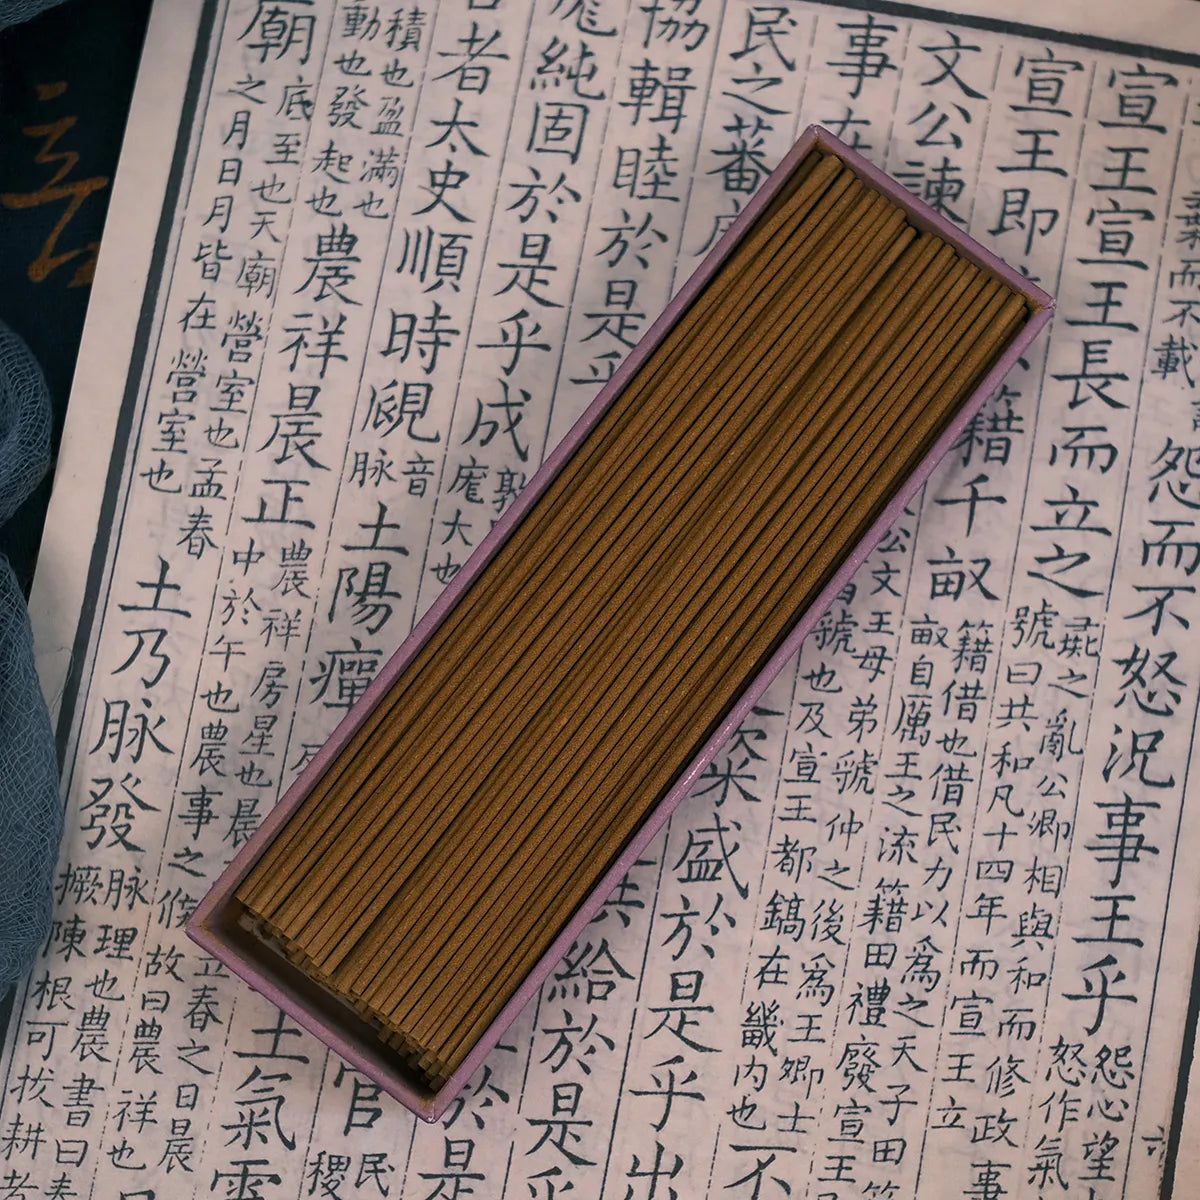 而不載
怨而不怒況事王乎
怨心望
怒作氣
宣王宣王長而立之
彘之亂公卿相與和而修政事
號曰共和凡十四年而宣王立
宣王即
籍千畝
籍借也借民力以為之天子田
畝自厲王之流籍田禮廢宣王
文公諫
公文王母弟虢仲之後為王卿士
虢也及宣王都鎬在畿內也
不
事在
粢盛於是乎出
民之蕃
共給於是
協輯睦於是乎
於是
厖純固於是乎成
敦
厖大也
官
民
稷
者太史順時覛
音
脈
土陽癉
土氣震
積也盈滿也
動也發起也
農祥晨正
農祥房星也晨
立春之日晨
中於午也農事之候故曰農祥也
廟
底至也天廟營室也孟春
之月日月皆在營室也
土乃脉發
脉理也農書曰春
撅陳根可拔耕者